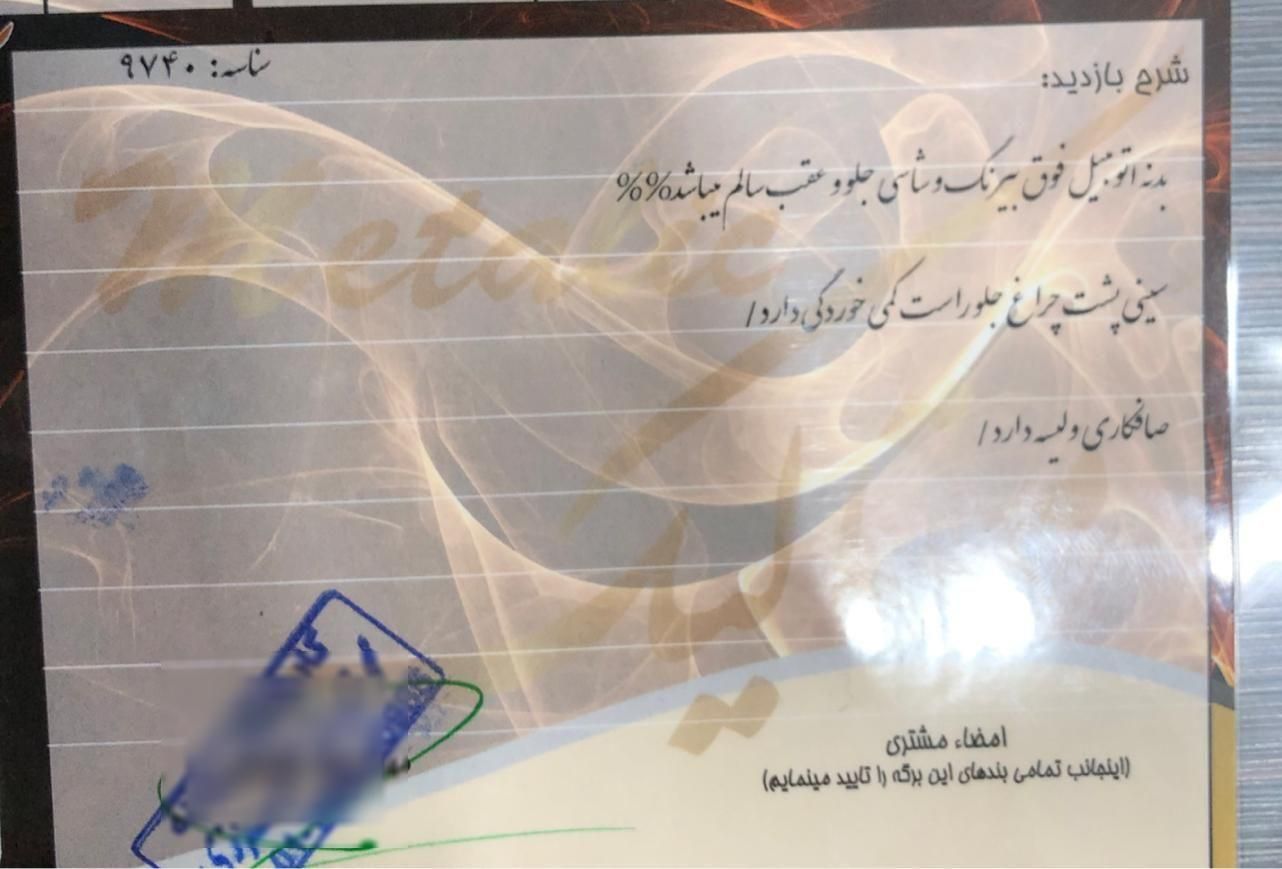 شرح بازدید:
شاسه: ۹۷۴۰
بدنه اتومبیل فوق بیرنگ و شاسی جلو و عقب سالم میباشد%%
سینی پشت چراغ جلو راست کمی خوردگی دارد/
صافکاری و لیسه دارد/
Metalic
امضاء مشتری
(اینجانب تمامی بندهای این برگه را تایید مینمایم)